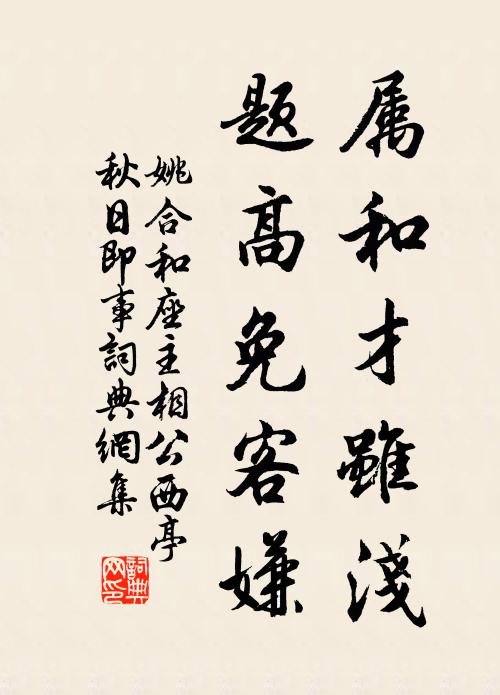 属和才雖淺
題高免客嫌
姚合和座主相公西亭
秋日即事詞典網集
詞典網印